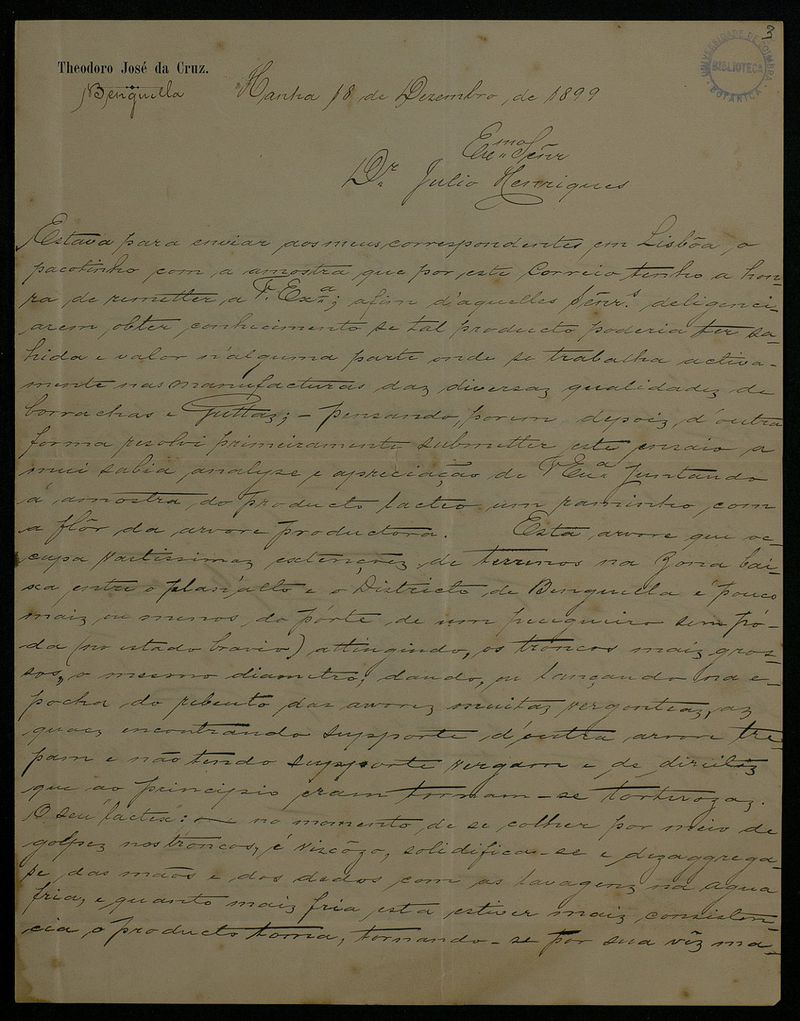 3
UNIVERSIDADE DE COIMBRA
BIBLIOTECA
BOTANICA
Theodoro José da Cruz.
Benguella
Hanha 18 de Dezembro de 1899
Exmo Señr
Dr. Julio Henriques
Estava para enviar aos meus correspondentes em Lisbôa, o
pacotinho com a amostra que por este Correio tenho a hon-
ra de remetter a V. Exa; afim d'aquelles Señrs. deligenci-
arem obter conhecimento se tal producto poderia ter sa-
hida e valor n'alguma parte onde se trabalha activa-
mente nas manufacturas daz diversaz qualidadez de
borrachas e Guttaz; - pensando, porem, depoiz, d'outra
forma resolvi primeiramente submetter este ensaio a
mui sabia analyse e apreciação de V. Exa. juntando
á amostra do producto lacteo um raminho com
a flôr da arvore productora. Esta arvore que oc-
cupa vastissimaz extençoez de terrenos na Zona bai-
xa entre o plan'alto e o Districto de Benguella é pouco
maiz ou menos do pórte de um pecegueiro sem pó-
da (no estado bravio) attingindo, os troncos maiz gros-
sos, o mesmo diametro; dando, ou lançando na e-
pocha do rebento das arvorez muitaz vergonteaz, az
quaez encontrando supporte d'outra arvore tre-
pam e não tendo supporte vergam e de direitaz
que ao principio eram tornam-se tortuozaz.
O seu lactex: no momento de se colher por meio de
golpez nos troncos, é viscôzo, solidifica-se e dezaggrega-
se das mãos e dos dedos com as lavagenz na agua
fria, e quanto maiz fria esta estiver maiz consisten-
cia o producto toma, tornando-se por sua vêz ma-